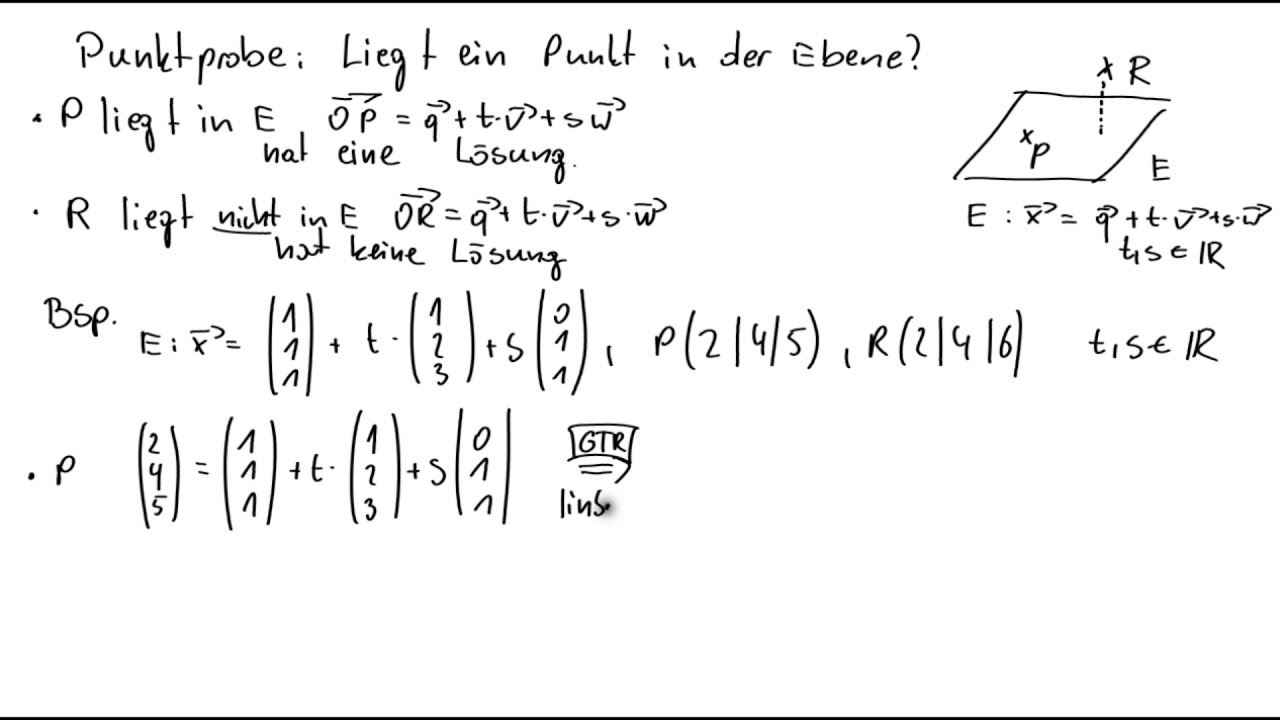 Punktprobe: Liegt ein Punkt in der Ebene?
• P liegt in E  $\vec{OP} = \vec{q} + t \cdot \vec{v} + s\vec{w}$
hat eine Lösung.
• R liegt nicht in E  $\vec{OR} = \vec{q} + t \cdot \vec{v} + s \cdot \vec{w}$
hat keine Lösung
x R
x P
E
$E: \vec{x} = \vec{q} + t \cdot \vec{v} + s \cdot \vec{w}$
$t, s \in \mathbb{R}$
Bsp. $E: \vec{x} = \begin{pmatrix} 1 \\ 1 \\ 1 \end{pmatrix} + t \cdot \begin{pmatrix} 1 \\ 2 \\ 3 \end{pmatrix} + s \begin{pmatrix} 0 \\ 1 \\ 1 \end{pmatrix}$, P(2|4|5), R(2|4|6)  $t, s \in \mathbb{R}$
• P  $\begin{pmatrix} 2 \\ 4 \\ 5 \end{pmatrix} = \begin{pmatrix} 1 \\ 1 \\ 1 \end{pmatrix} + t \cdot \begin{pmatrix} 1 \\ 2 \\ 3 \end{pmatrix} + s \begin{pmatrix} 0 \\ 1 \\ 1 \end{pmatrix}$  GTR
linS